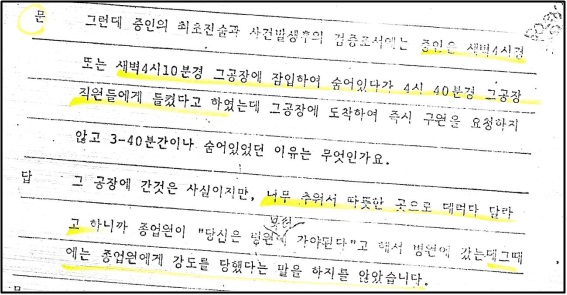 문 그런데 증인의 최초진술과 사건발생후의 검증조서에는 증인은 새벽4시경
또는 새벽4시10분경 그공장에 잠입하여 숨어있다가 4시 40분경 그공장
직원들에게 들켰다고 하였는데 그공장에 도착하여 즉시 구원을 요청하지
않고 3-40분간이나 숨어있었던 이유는 무엇인가요.
답 그 공장에 간것은 사실이지만, 너무 추워서 따뜻한 곳으로 데려다 달라
고 하니까 종업원이 "당신은 병원에 가야된다"고 해서 병원에 갔는데그때
에는 종업원에게 강도를 당했다는 말을 하지를 않았습니다.